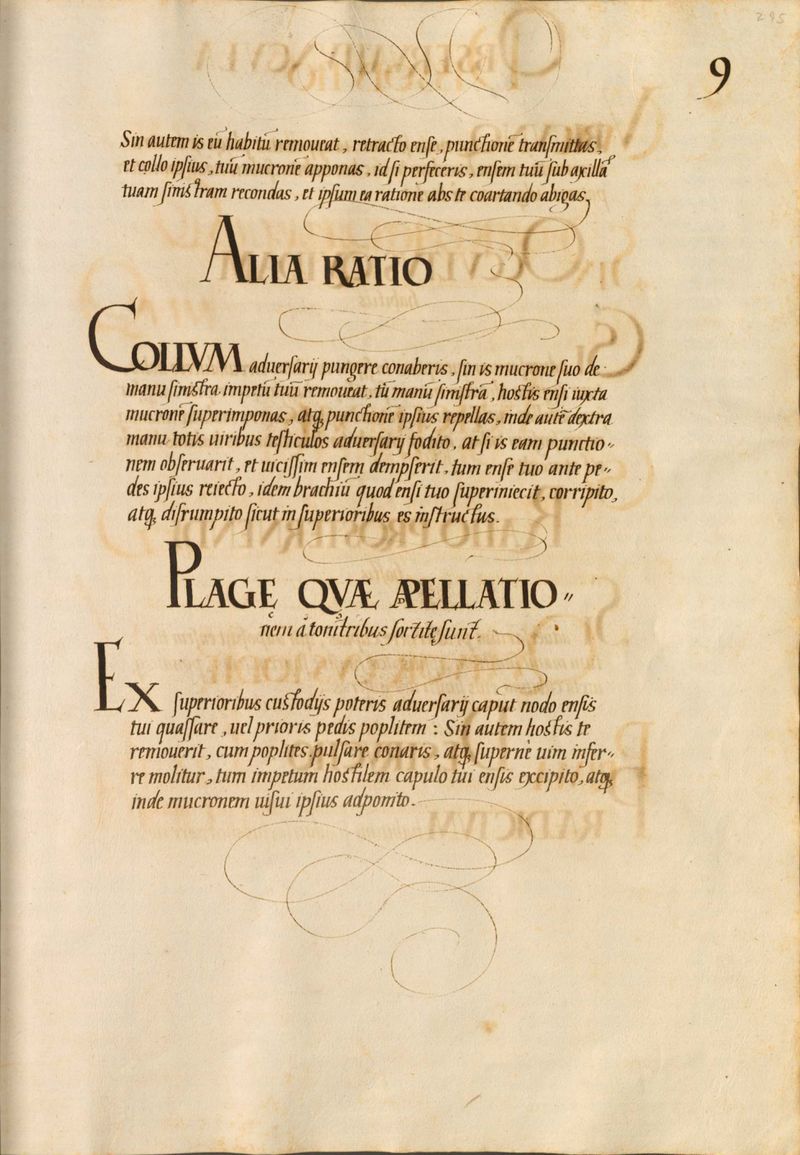 295
9
Sin autem is eũ habitũ remoueat, retracto ense, punctionẽ transmittas,
et collo ipsius, tuũ mucronẽ apponas, id si perfeceris, ensem tuũ sub axillã
tuam sinistram recondas, et ipsum ea ratione abs te coartando abigas.
ALIA RATIO
COLLVM aduersarij pungere conaberis, sin is mucrone suo de
manu sinistra impetũ tuũ remoueat, tũ manũ sinistrã, hostis ensi iuxta
mucronẽ superimponas, atq, punctione ipsius repellas, inde autẽ dextra
manu totis uiribus testiculos aduersarij fodito, at si is eam punctio-
nem obseruarit, et uicissim ensem dempserit, tum ense tuo ante pe-
des ipsius reiecto, idem brachiũ quod ensi tuo superiniecit, corripito,
atq, disrumpito sicut in superioribus es instructus.
PLAGE QVÆ APELLATIO-
nem á tonitribus sortitę sunt.
EX superioribus custodijs poteris aduersarij caput nodo ensis
tui quassare, uel prioris pedis poplitem: Sin autem hostis te
remouerit, cum poplites pulsare conaris, atq, superne uim infer-
re molitur, tum impetum hostilem capulo tui ensis excipito, atq,
inde mucronem uisui ipsius adponito.